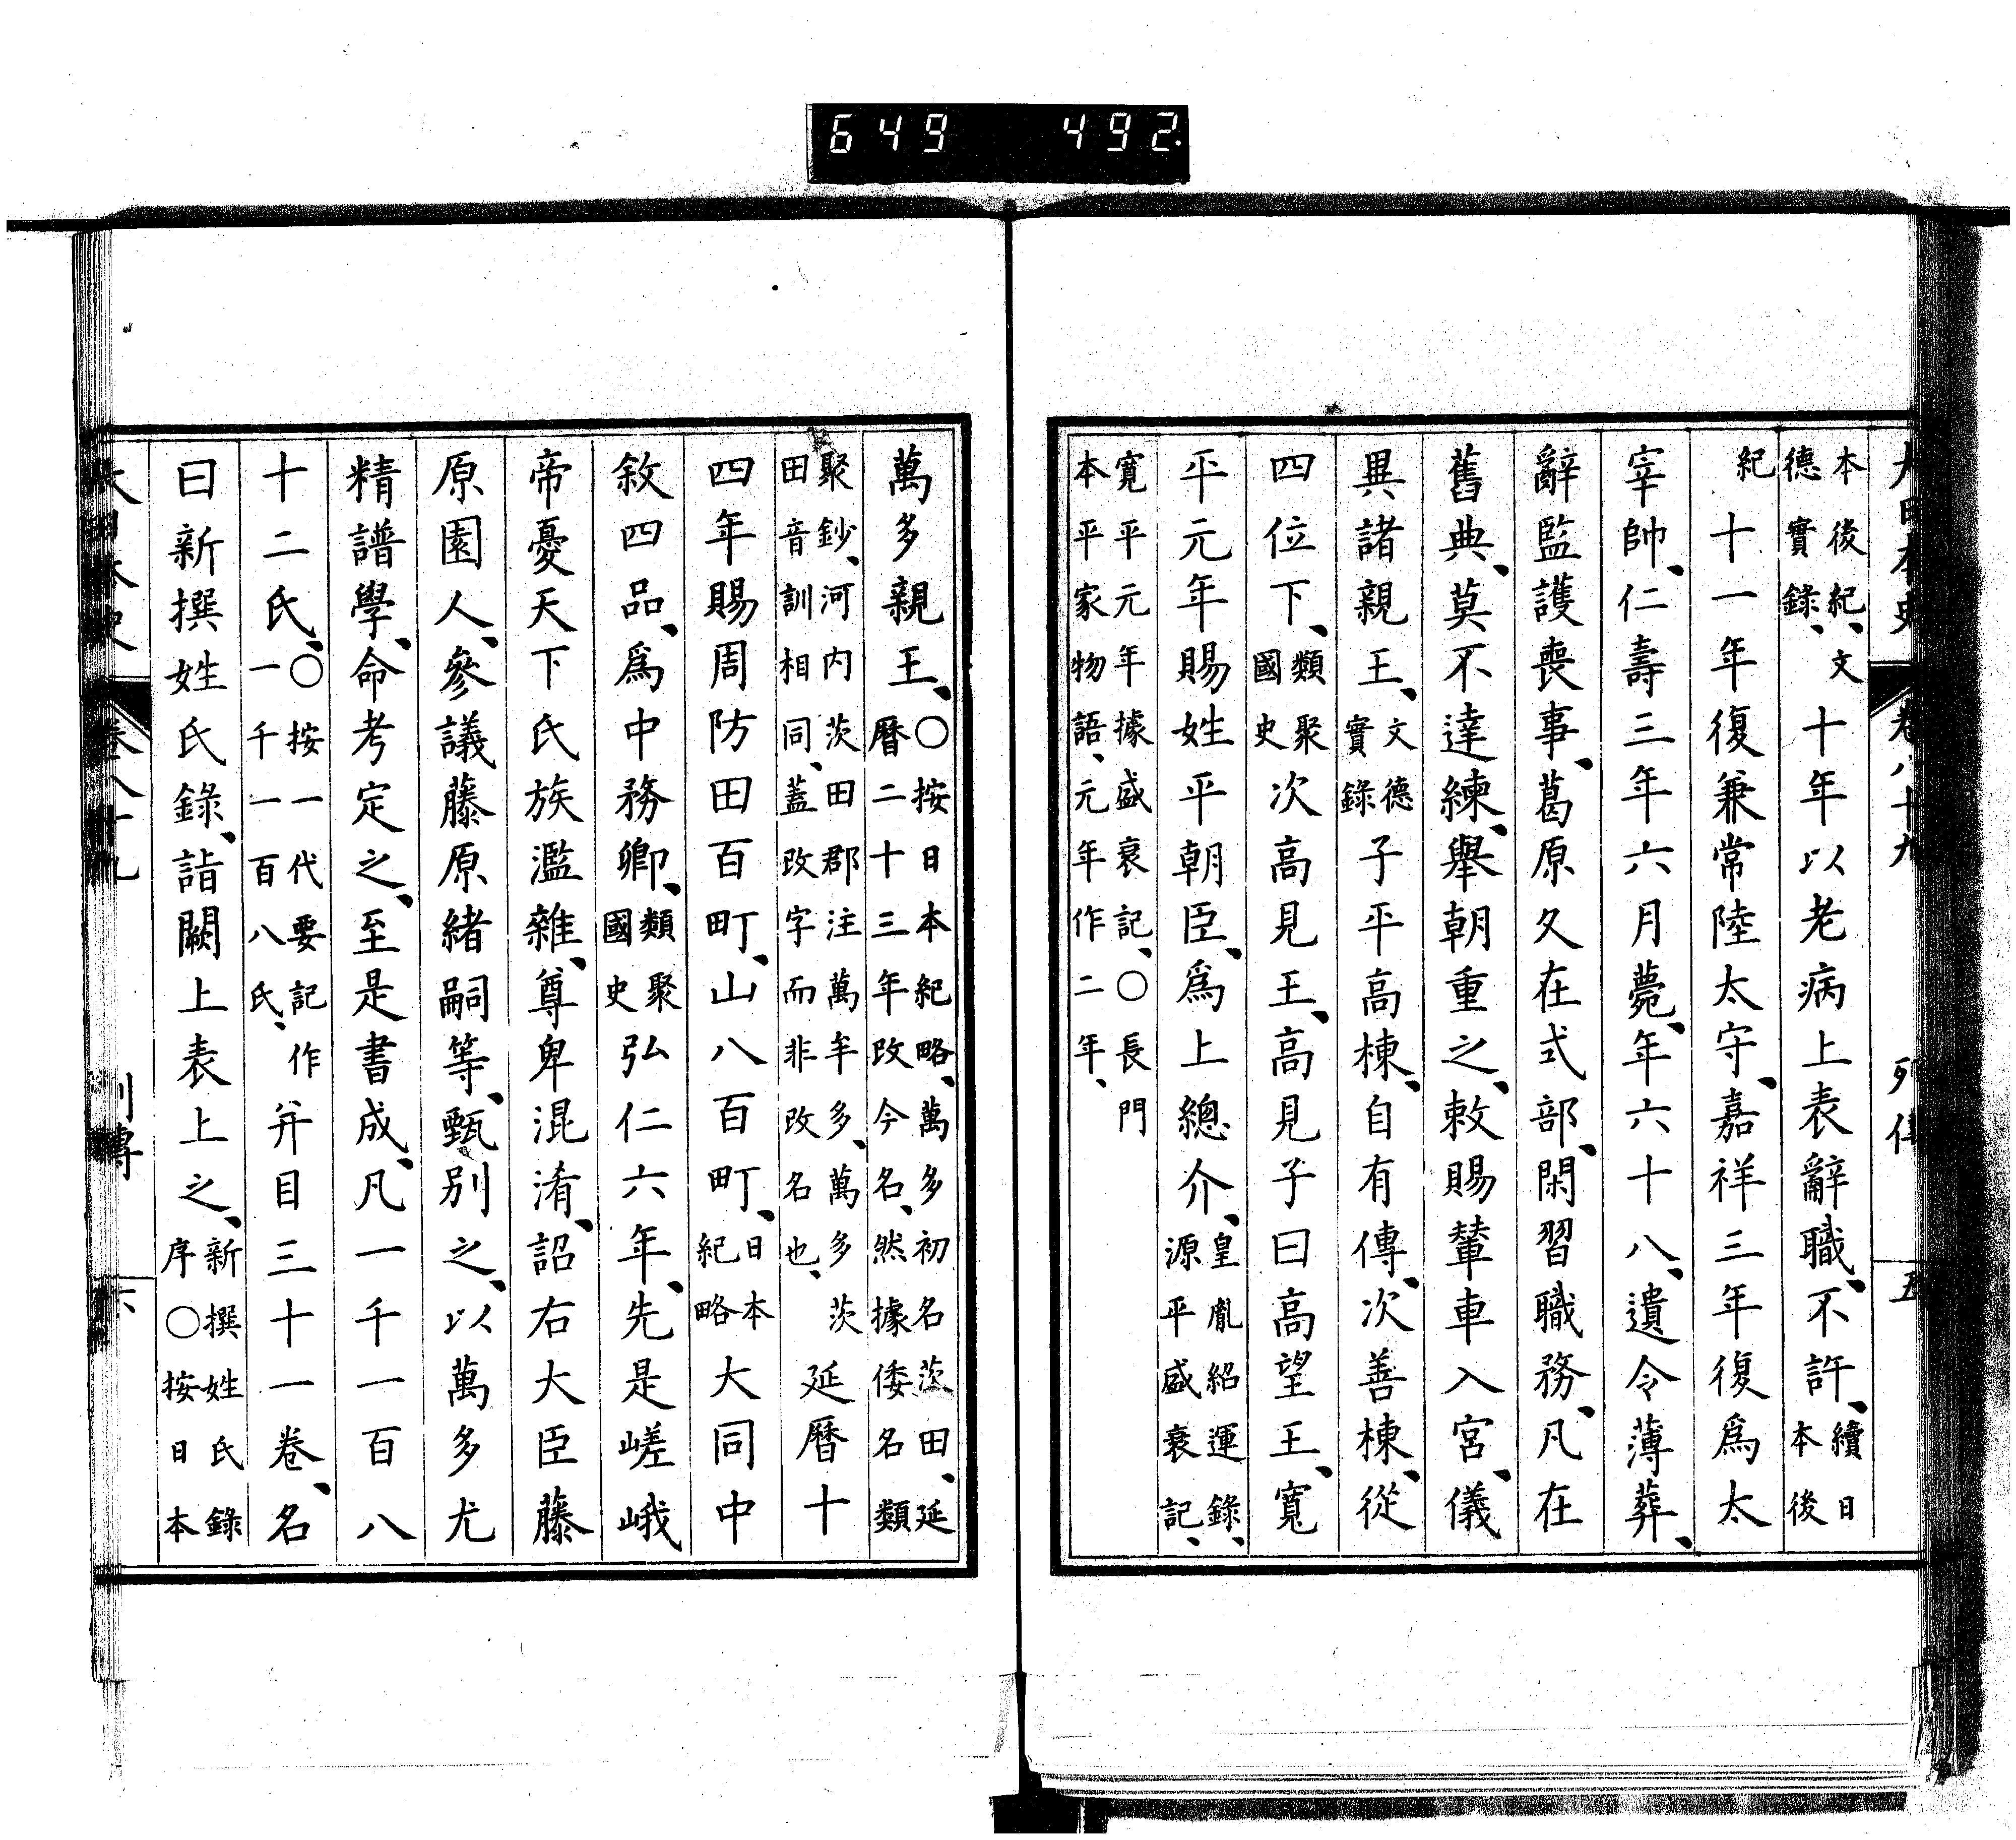 649 492
大日本史 卷八十九 列傳 五
本後紀、文德實錄、十年以老病上表辭職、不許、續日本後
紀十一年復兼常陸太守、嘉祥三年復爲太
宰帥、仁壽三年六月薨、年六十八、遺令薄葬、
辭監護喪事、葛原久在式部、閑習職務、凡在
舊典、莫不達練、擧朝重之、敕賜輦車入宮、儀
異諸親王、文德實錄子平高棟、自有傳、次善棟、從
四位下、類聚國史次高見王、高見子曰高望王、寬
平元年賜姓平朝臣、爲上總介、皇胤紹運錄、源平盛衰記、
寬平元年據盛衰記、○長門本平家物語、元年作二年、
萬多親王、○按日本紀略、萬多初名茨田、延曆二十三年改今名、然據倭名類
聚鈔、河内茨田郡注萬牟多、萬多茨田音訓相同、蓋改字而非改名也、延曆十
四年賜周防田百町、山八百町、日本紀略大同中
敘四品、爲中務卿、類聚國史弘仁六年、先是嵯峨
帝憂天下氏族濫雜、尊卑混淆、詔右大臣藤
原園人、參議藤原緒嗣等、甄別之、以萬多尤
精譜學、命考定之、至是書成、凡一千一百八
十二氏、○按一代要記作一千一百八氏、幷目三十一卷、名
曰新撰姓氏錄、詣闕上表上之、新撰姓氏錄序○按日本
大日本史 卷八十九 列傳 六